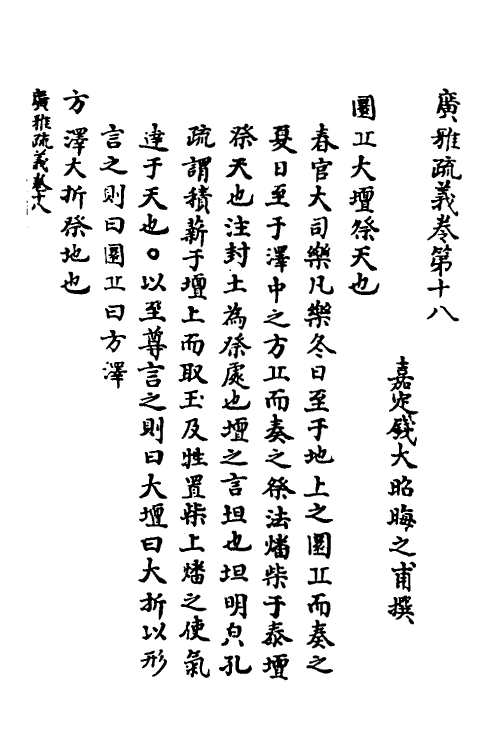 廣雅疏義卷第十八
嘉定錢大昭晦之甫撰
圜丠大壇祭天也
春官大司樂凡樂冬日至于地上之圜丠而奏之
夏日至于澤中之方丠而奏之祭法燔柴于泰壇
祭天也注封土為祭處也壇之言坦也坦明皃孔
疏謂積薪于壇上而取玉及牲置柴上燔之使氣
達于天也〇以至尊言之則曰大壇曰大折以形
言之則曰圜丠曰方澤
方澤大折祭地也
廣雅疏義卷十八